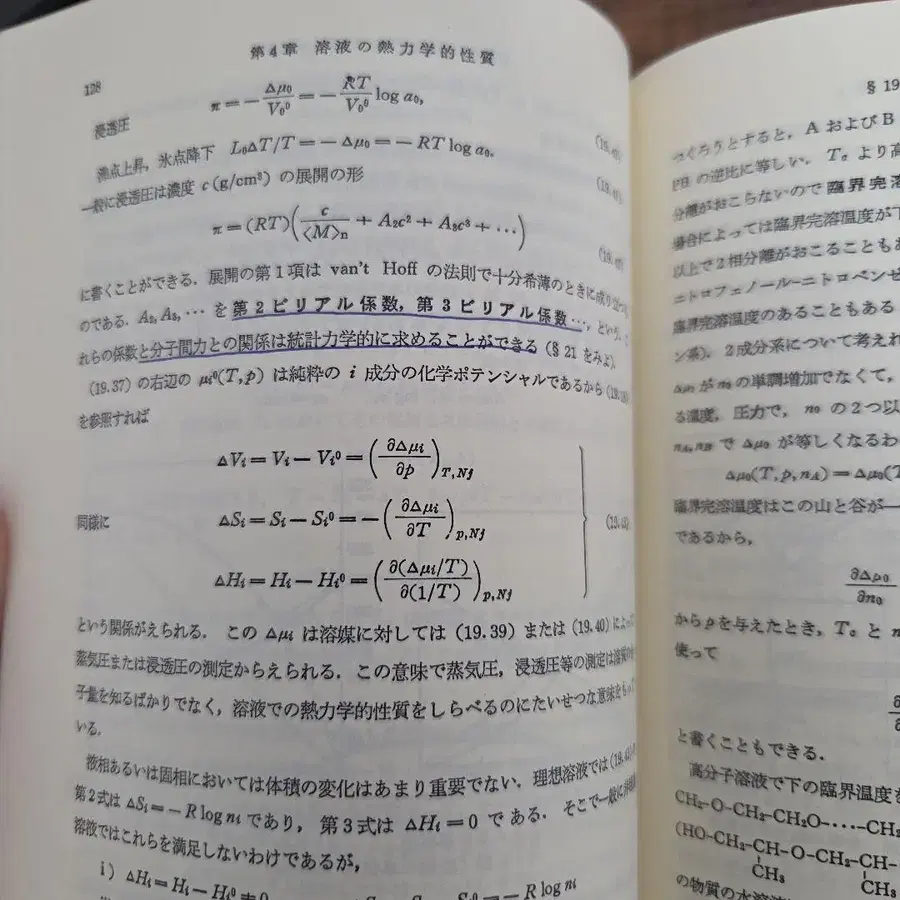 第4章 溶液の熱力学的性質
128
浸透圧 π = − Δμ₀/V₀⁰ = − RT/V₀⁰ log a₀,
沸点上昇，氷点降下 L₀ΔT/T = − Δμ₀ = − RT log a₀.
一般に浸透圧は濃度 c (g/cm³) の展開の形
π = (RT)(c/⟨M⟩ₙ + A₂c² + A₃c³ + ⋯)
に書くことができる．展開の第1項は van't Hoff の法則で十分希薄のときに成り
のである．A₂, A₃, ⋯ を第2ビリアル係数，第3ビリアル係数⋯，という．
れらの係数と分子間力との関係は統計力学的に求めることができる（§21 をみよ）．
(19.37) の右辺の μᵢ⁰(T, p) は純粋の i 成分の化学ポテンシャルであるから
を参照すれば
ΔVᵢ = Vᵢ − Vᵢ⁰ = (∂Δμᵢ/∂p)T,Nj
同様に ΔSᵢ = Sᵢ − Sᵢ⁰ = −(∂Δμᵢ/∂T)p,Nj
ΔHᵢ = Hᵢ − Hᵢ⁰ = (∂(Δμᵢ/T)/∂(1/T))p,Nj
という関係がえられる．この Δμᵢ は溶媒に対しては (19.39) または (19.40) によって
蒸気圧または浸透圧の測定からえられる．この意味で蒸気圧，浸透圧等の測定は
子量を知るばかりでなく，溶液での熱力学的性質をしらべるのにたいせつな意味をもって
いる．
液相あるいは固相においては体積の変化はあまり重要でない．理想溶液では
第2式は ΔSᵢ = − R log nᵢ であり，第3式は ΔHᵢ = 0 である．そこで一般に
溶液ではこれらを満足しないわけであるが，
i) ΔHᵢ = Hᵢ − Hᵢ⁰ − R log nᵢ
§ 19
つくろうとすると，A および B
の逆比に等しい．Tc より高
分離がおこらないので臨界完溶
場合によっては臨界完溶温度が下
以上で2相分離がおこることもあ
ニトロフェノール-ニトロベンゼ
臨界完溶温度のあることもある
ン系)．2成分系について考えれ
Δμ₀ が n₀ の単調増加でなくて，
る濃度，圧力で，n₀ の2つ以
で Δμ₀ が等しくなるわ
Δμ₀(T, p, nA) = Δμ₀(T
臨界完溶温度はこの山と谷が一
であるから，
∂Δμ₀/∂n₀
から p を与えたとき，Tc と n
使って
と書くこともできる．
高分子溶液で下の臨界温度を
CH₂-O-CH₂-CH₂O-⋯-CH₂
(HO-CH₂-CH-O-CH₂-CH-
CH₃ CH₃
の物質の水溶液